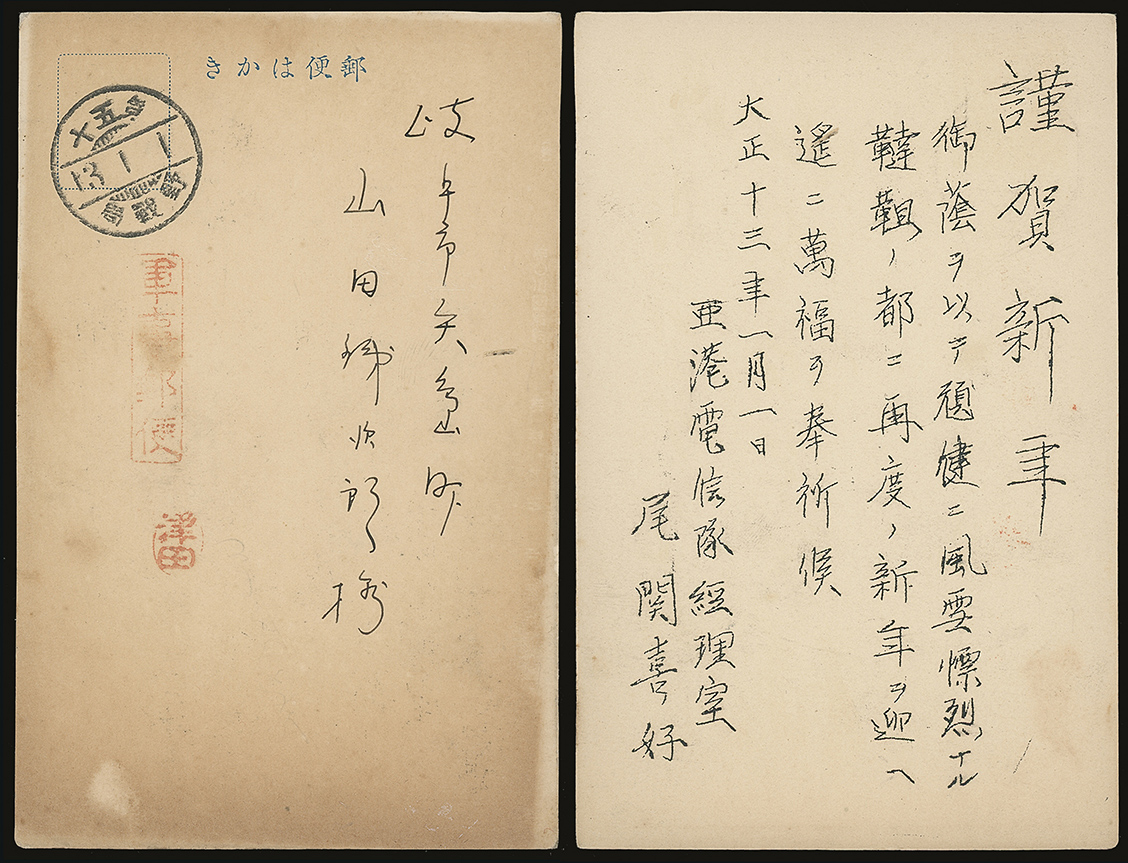 郵便はかき
十五
13.1.1
野戰局
軍事郵便
津田
岐阜市矢島町
山田
次郎様
謹賀新年
御蔭ヲ以テ頑健ニ風雲慓烈ナル
韃靼ノ都ニ再度ノ新年ヲ迎ヘ
遙ニ萬福ヲ奉祈候
大正十三年一月一日
亜港電信隊經理室
尾関喜好